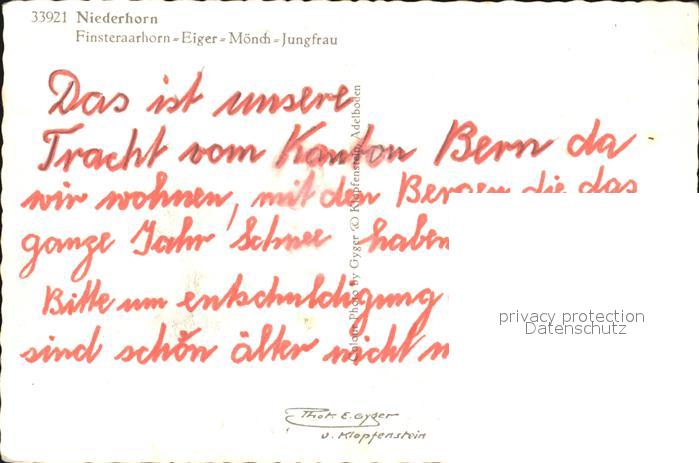 33921 Niederhorn
Finsteraarhorn - Eiger - Mönch - Jungfrau
Das ist unsere
Tracht vom Kanton Bern da
wir wohnen, mit den Bergen die das
ganze Jahr Schnee haben
Bitte um entschuldigung
sind schön älter nicht
Colour Photo by Gyger & Klopfenstein, Adelboden
privacy protection
Datenschutz
Phot. E. Gyger
u. Klopfenstein